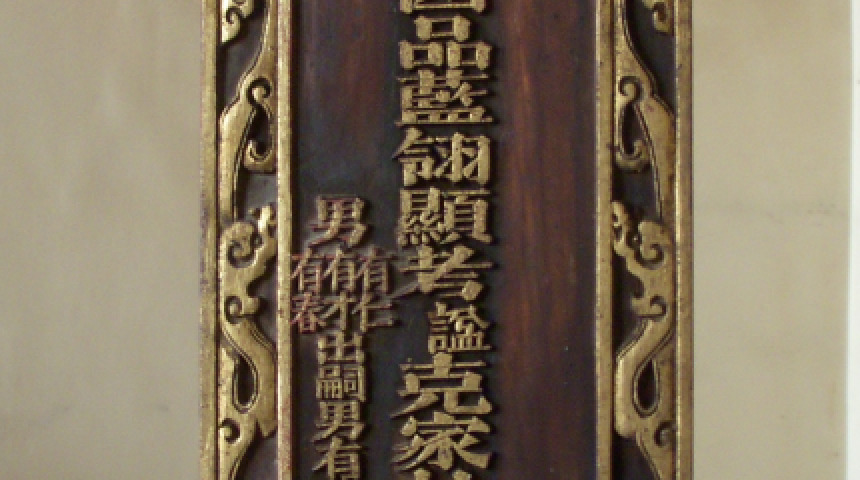 品藍翎顯考諡克家
男
有仁
有才
有春
出嗣男有